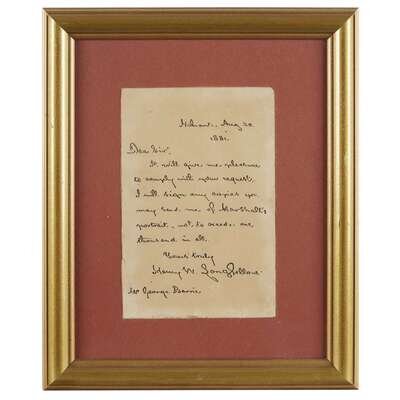 Nahant. Aug 20
1881.
Dear Sir,
It will give me pleasure
to comply with your request.
I will sign any copies you
may send me of Marshall's
portrait, not to exceed one
thousand in all.
Yours truly
Henry W. Longfellow
Mr George